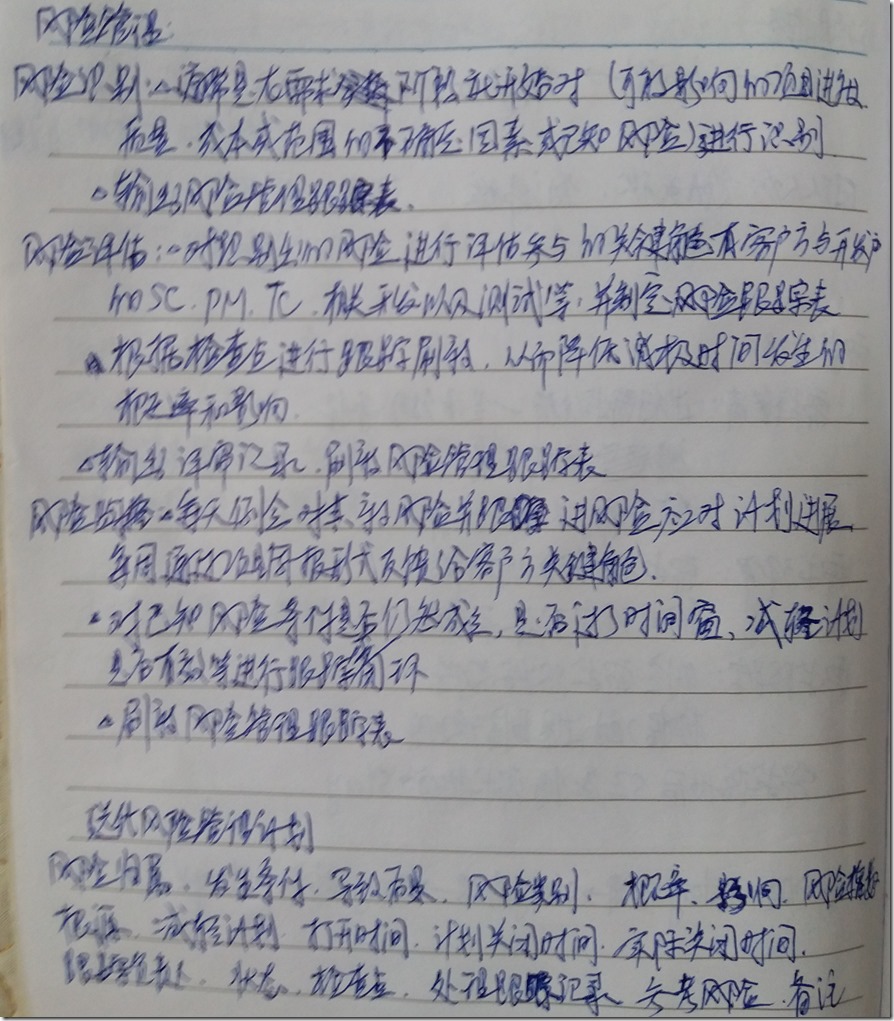 风险管理:
风险识别: 在需求 阶段就开始对(可能影响的项目进度
质量、成本或范围的不确定因素或已知风险)进行识别
输出风险管理跟踪表.
风险评估: 对识别出的风险进行评估参与的关键角色有客户方与开发方
的SC、PM、TC、相关开发以及测试等,并制定风险跟踪表
根据检查点进行跟踪刷新,从而降低消极时间发生的
概率和影响.
输出评审记录、刷新风险管理跟踪表
风险监控 每天例会对其新风险并跟踪 进风险应对计划进展
每周 项目周报形式反馈给客户方关键角色.
对已知风险条件是否仍然成立,是否过了时间窗、减轻计划
是否有效等进行跟踪闭环
刷新风险管理跟踪表
风险管理计划
风险归属、发生条件、导致后果、风险类别、概率、影响、风险
减轻计划、打开时间、计划关闭时间、实际关闭时间、
跟踪负责人、状态、检查点、处理跟踪记录 参考风险、备注